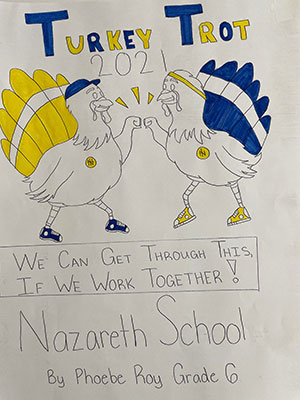 TURKEY TROT
2021
WE CAN GET THROUGH THIS,
IF WE WORK TOGETHER!
Nazareth School
By Phoebe Roy Grade 6